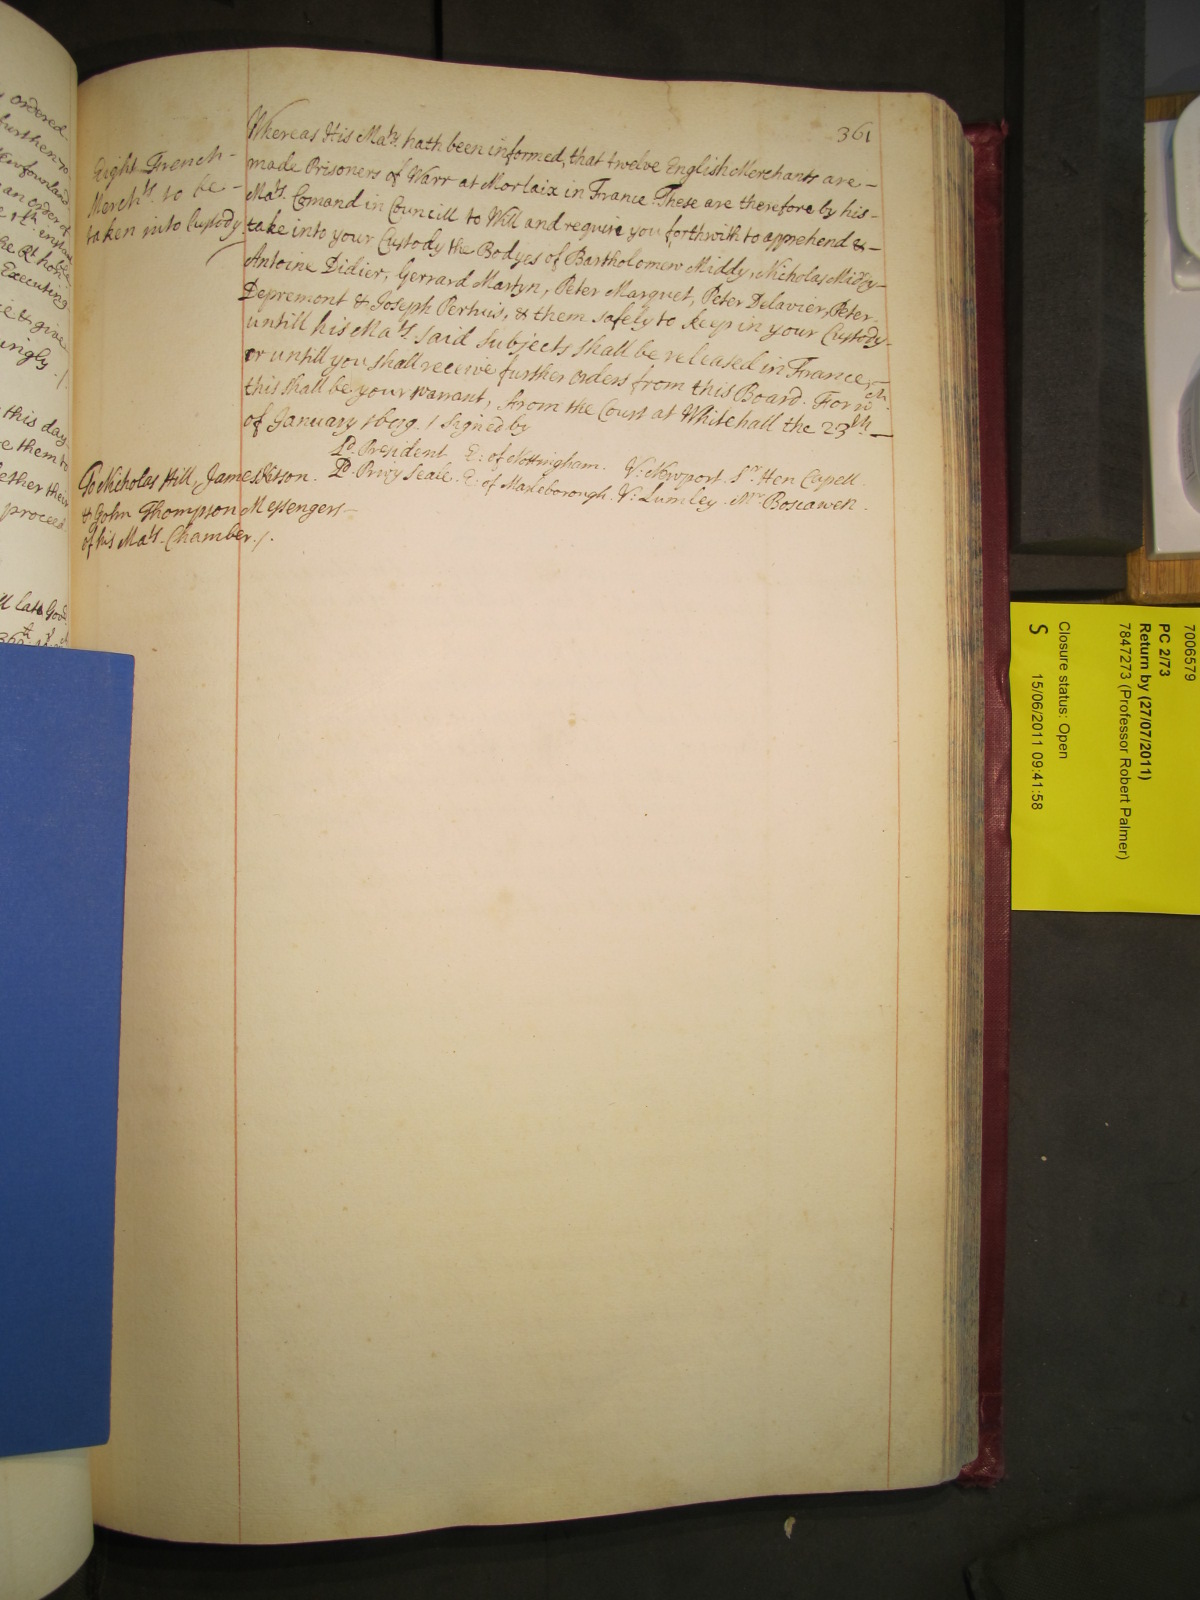 361
Eight French-
Mercht.s to be -
taken into Custody
Whereas His Maty. hath been informed, that twelve English Merchants are -
made Prisoners of Warr at Morlaix in France. These are therefore by his -
Mats. Comand in Councill to Will and require you forthwith to apprehend & -
take into your Custody the Bodyes of Bartholomew Middy, Nicholas Middy -
Antoine Didier, Gerrard Martyn, Peter Marquet, Peter Delavier, Peter
Depremont & Joseph Perhuis, & them safely to keep in your Custody -
untill his Mats. said subjects shall be released in France,
or untill you shall receive further orders from this Board. For wch.
this shall be your warrant, from the Court at Whitehall the 23th -
of January 1689. / Signed by
Ld. President E: of Nottingham. V: Newport Sr. Hen Capell.
Ld. Privy Seale. E: of Marleborough. V: Lumley. Mr. Boscawen.
To Nicholas Hill, James Kitson.
& John Thompson Messengers -
of his Mats. Chamber. /.
ordered
further
Newfounland
an order of
the Rt. hoble
Executing
& give
ingly
this day
them to
ether their
proceed
late
7006579
PC 2/73
Return by (27/07/2011)
7847273 (Professor Robert Palmer)
Closure status: Open
S 15/06/2011 09:41:58